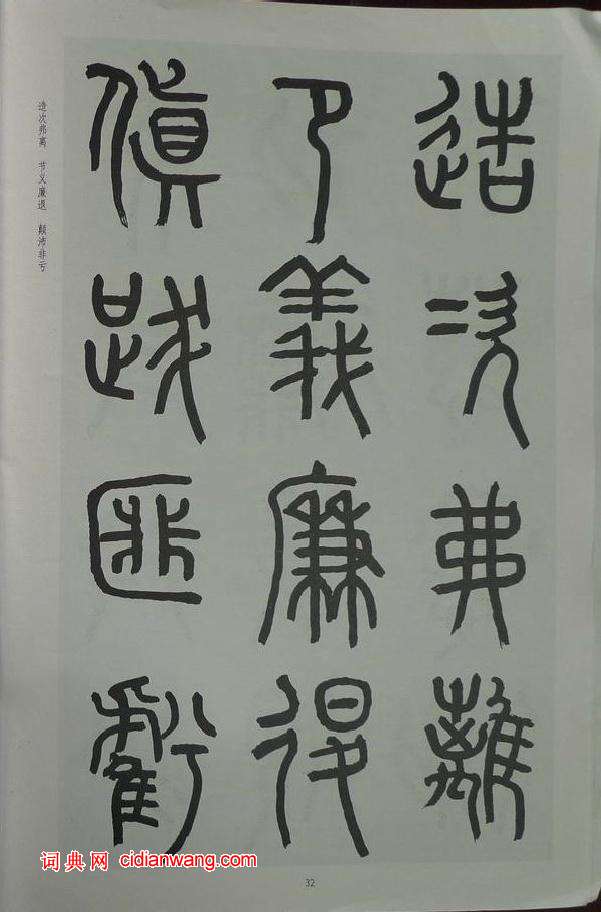 造次弗離
卪義廉退
傎跋匪虧
造次弗离 节义廉退 颠沛非亏
词典网 cidianwang.com
32